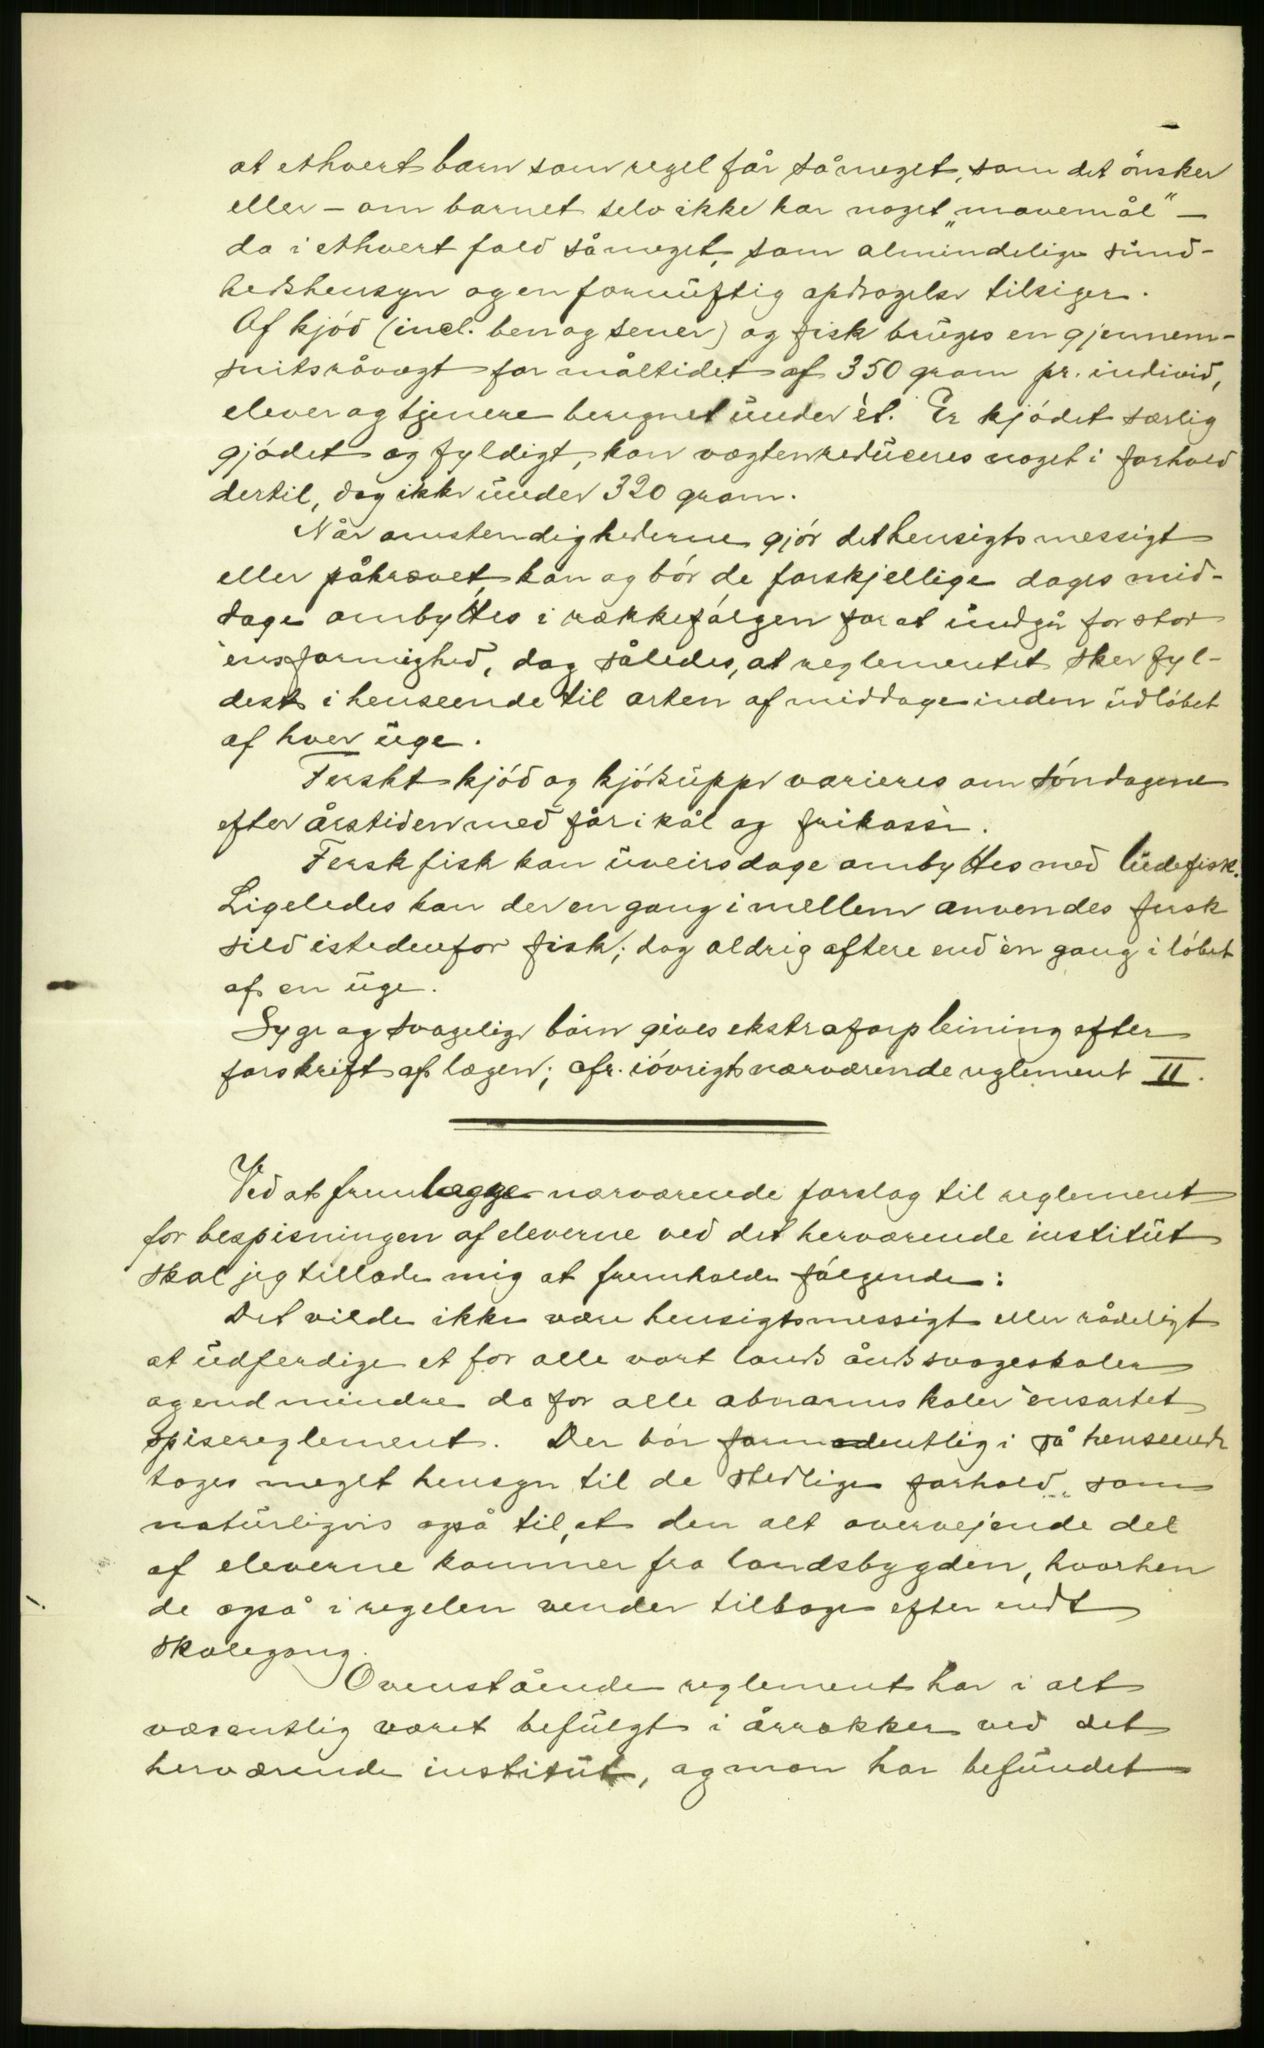 at ethvert barn som regel får såmeget, som det önsker
eller – om barnet selv ikke har noget „mavemål" –
da i ethvert fald såmeget, som almindelige sund-
hedshensyn og en fornuftig opdragelse tilsiger.
Af kjód (incl. ben og sener) og fisk bruges en gjennem-
snitsråvægt for måltidet af 350 gram pr. individ,
elever og tjenere beregnet under ét. Er kjódet særlig
gjódet og fyldigt, kan vægten reduceres noget i forhold
dertil, dog ikke under 320 gram.
Når omstendighederne gjór det hensigtsmessigt
eller påkrævet, kan og bór de forskjellige dages mid-
dage ombyttes i rækkefólgen for at undgå for stor
ensformighed, dog således, at reglementet sker fyl-
dest i henseende til arten af middage inden udlóbet
af hver uge.
Ferskt kjód og kjódsuppe varieres om sóndagene
efter årstiden med får i kål og frikassè.
Fersk fisk kan uveirsdage ombyttes med ludefisk.
Ligeledes kan der en gang imellem anvendes fersk
sild istedenfor fisk; dog aldrig oftere end èn gang i lóbet
af en uge.
Syge og svagelige bórn gives ekstraforpleining efter
forskrift af lægen; cfr. ióvrigt nærværende reglement II.
Ved at fremlægge nærværende forslag til reglement
for bespisningen af eleverne ved det herværende institut
skal jeg tillade mig at fremholde fólgende:
Det vilde ikke være hensigtsmessigt eller rådeligt
at udferdige et for alle vort lands åndssvageskoler
og end mindre da for alle abnormskoler ensartet
spisereglement. Der bór formodentlig i så henseende
tages meget hensyn til de stedlige forhold, som
naturligvis også til, at den alt overvejende del
af eleverne kommer fra landsbygden, hvorhen
de også i regelen vender tilbage efter endt
skolegang.
Ovenstående reglement har i alt
væsentlig været befulgt i årrækker ved det
herværende institut, og man har befundet